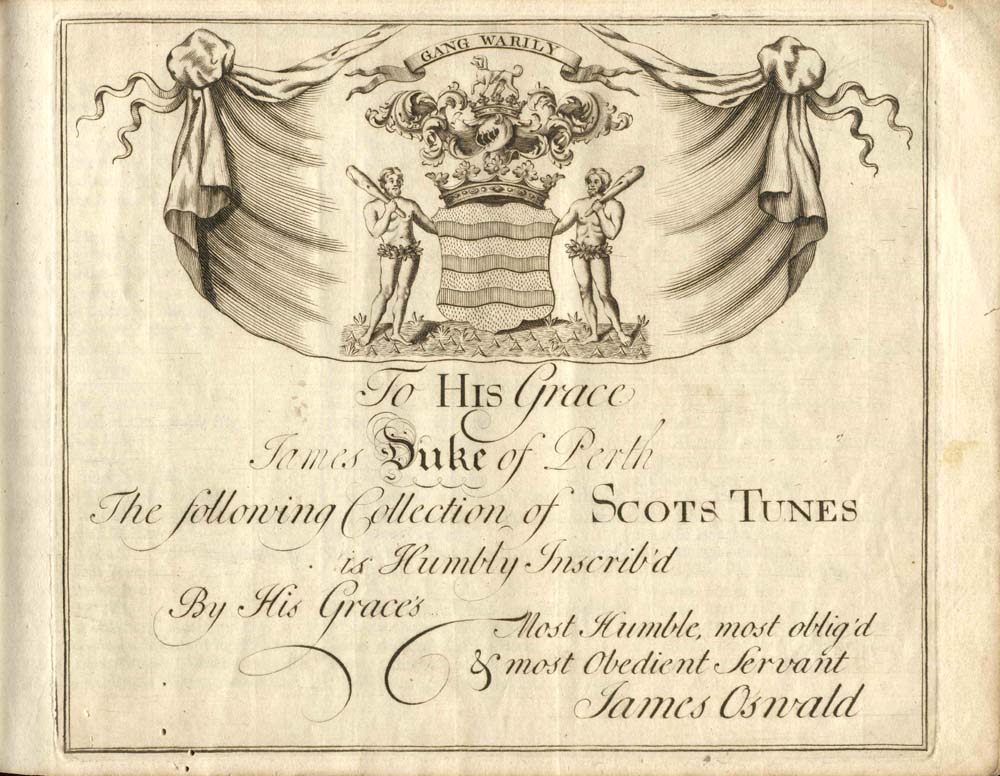 GANG WARILY
To HIS Grace
James Duke of Perth
The following Collection of SCOTS TUNES
is Humbly Inscrib'd
By His Grace's
Most Humble, most oblig'd
& most Obedient Servant
James Oswald